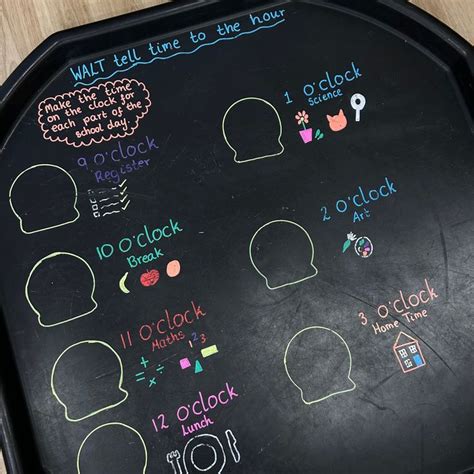 WALT tell time to the hour
Make the time
on the clock for
each part of the
school day.
9 o'clock
Register
10 o'clock
Break
11 o'clock
Maths
1 2 3
+ - × ÷
12 o'clock
Lunch
1 o'clock
Science
2 o'clock
Art
3 o'clock
Home Time